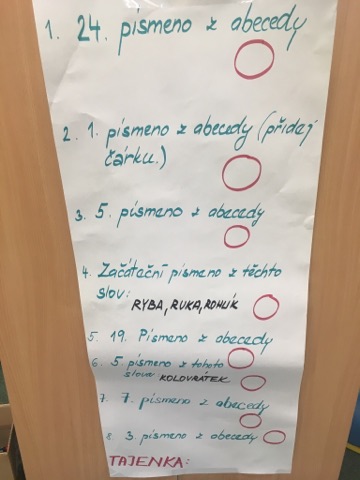 1. 24. písmeno z abecedy
2. 1. písmeno z abecedy (přidej
čárku.)
3. 5. písmeno z abecedy
4. Začáteční písmeno z těchto
slov:
RYBA, RUKA, ROHLÍK
5. 19. Písmeno z abecedy
6. 5 písmeno z tohoto
slova KOLOVRÁTEK
7. 7. písmeno z abecedy
8. 3. písmeno z abecedy
TAJENKA: